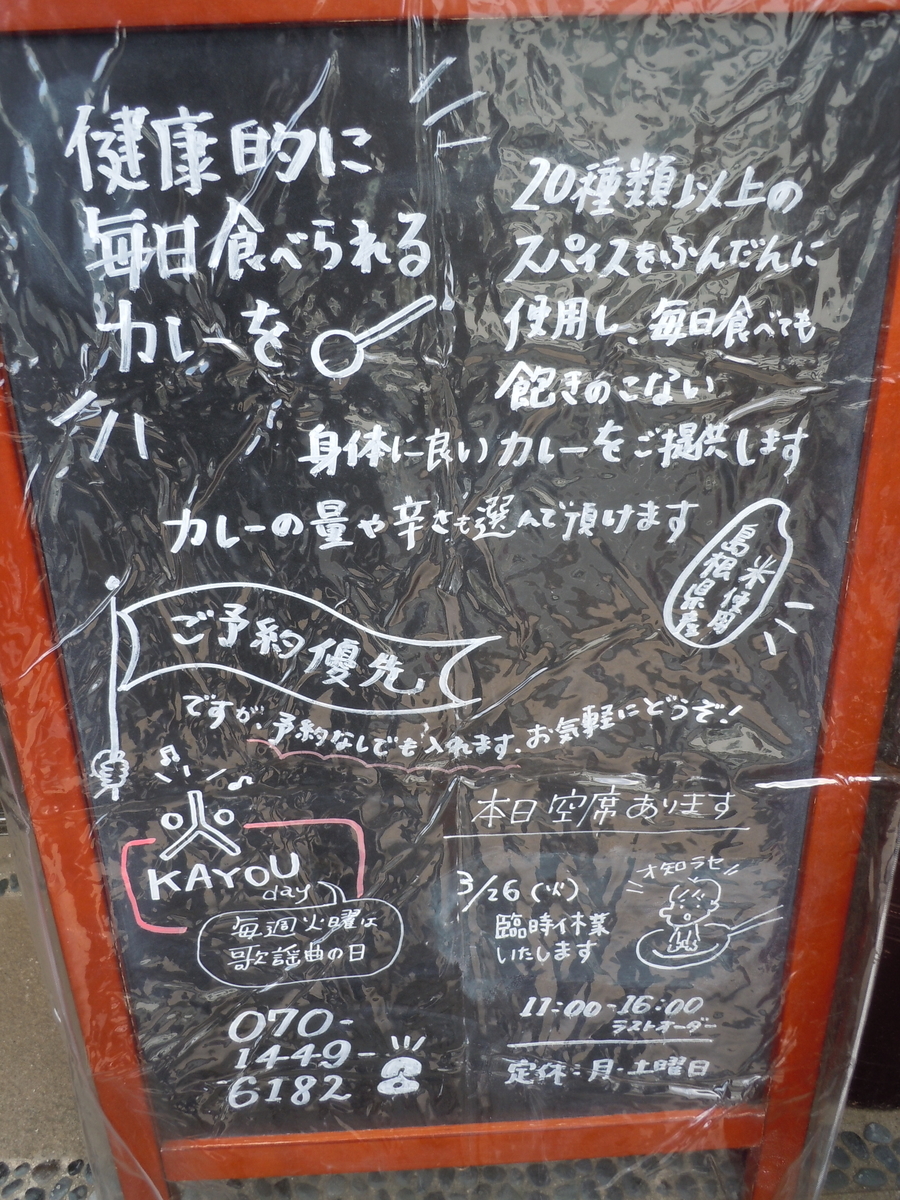 健康的に
毎日食べられる
カレーを
20種類以上の
スパイスをふんだんに
使用し、毎日食べても
飽きのこない
身体に良いカレーをご提供します
カレーの量や辛さも選んで頂けます
島根県産
米使用
ご予約優先
ですが、予約なしでも入れます。お気軽にどうぞ!
火
KAYOU
day
毎週火曜は
歌謡曲の日
070-
1449-
6182
本日空席あります
オ知ラセ
3/26(火)
臨時休業
いたします
11:00-16:00
ラストオーダー
定休:月・土曜日